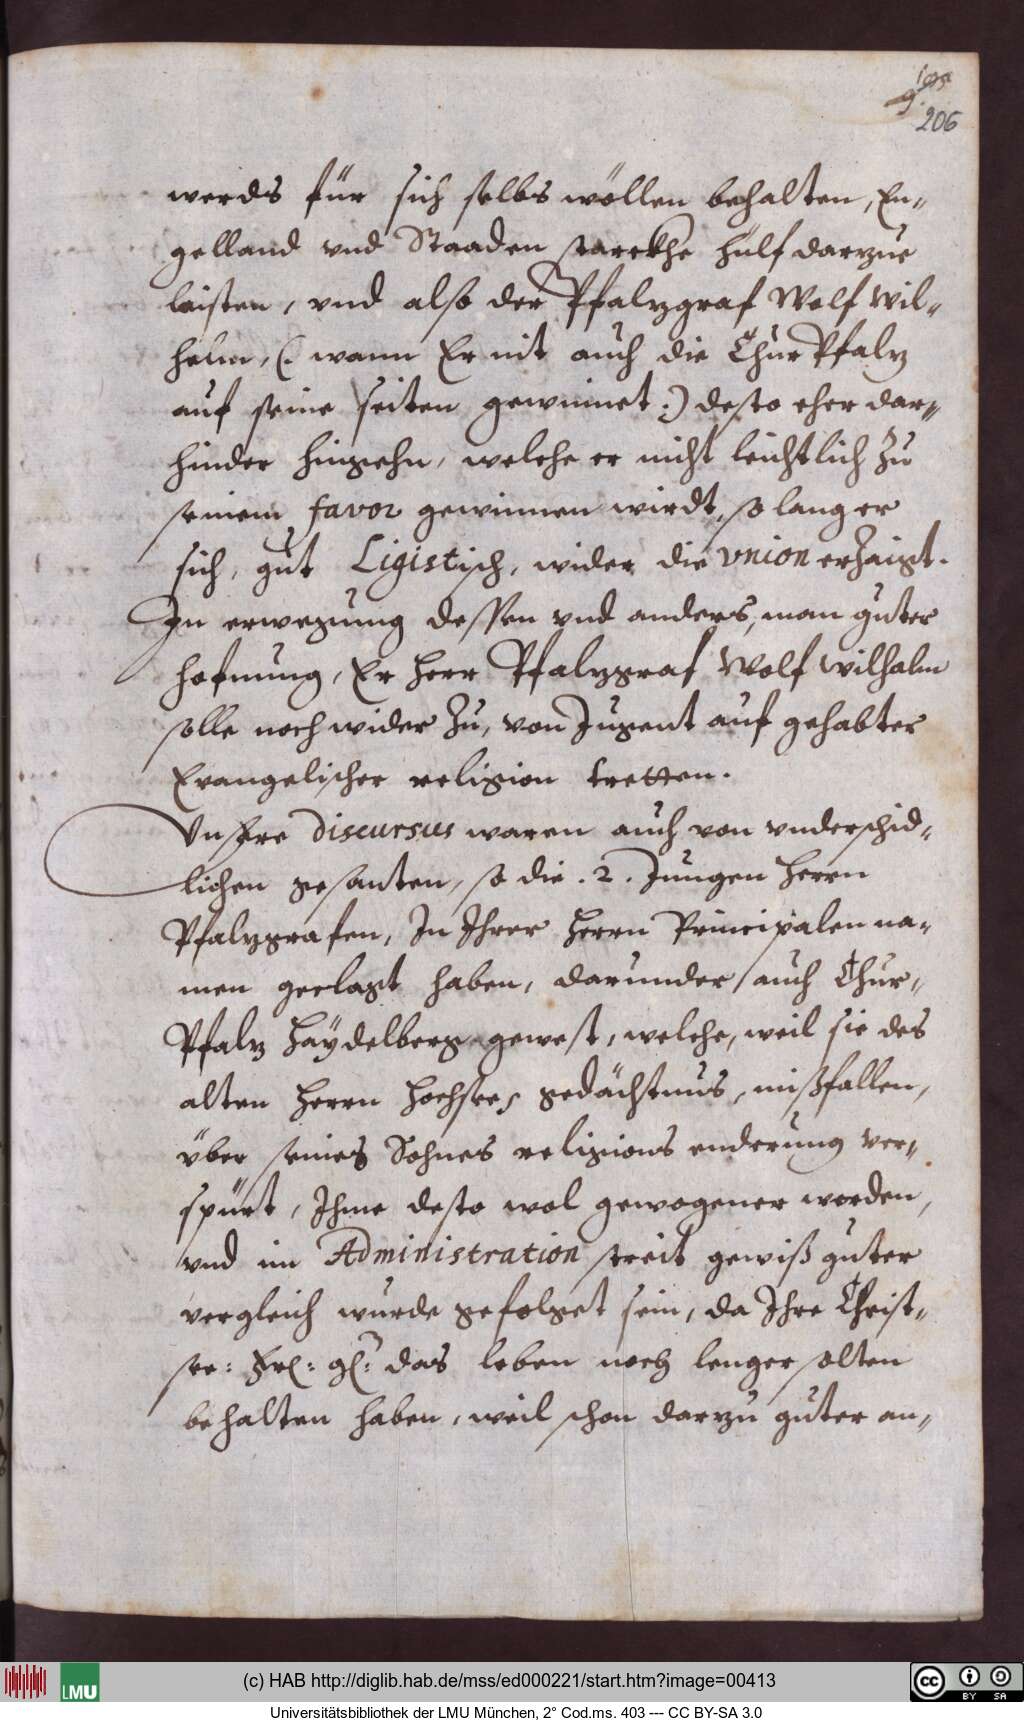 206
werds für sich selbs wöllen behalten, En=
gelland vnd Staaden starckhe hülf darzue
leisten, vnd also der Pfalzgraf Wolf Wil=
helm, (. wann Er nit auch die ChurPfalz
auf seine seiten gewinnet .) desto eher dar=
hinder hingehn, welche er nicht leichtlich zu
seinem favor gewinnen wirdt, so lang er
sich, gut Ligistisch, wider die vnion erzaigt.
In erwegung dessen vnd anders, man guter
hofnung, Er Herr Pfalzgraf Wolf Wilhelm
solle noch wider zu, von Jugent auf gehabter
Evangelischer religion tretten.
Vnsere discursus waren auch von vnderschid=
lichen gesanten, so die .2. Jungen Herrn
Pfalzgrafen, In Ihrer Herrn Principalen na=
men geclagt haben, darunder auch Chur=
Pfalz Haÿdelberg gewest, welche, weil sie des
alten Herrn gedächtnus, mißfallen,
über seines Sohnes religions enderung ver=
spürt, Ihme desto wol gewogener worden,
vnd im Administration streit gewiß guter
vergleich wurde gefolget sein, da Ihre Christ=
see: Frl: gl: das leben noch lenger solten
behalten haben, weil schon darzu guter an=
(c) HAB http://diglib.hab.de/mss/ed000221/start.htm?image=00413
LMU
BY SA
Universitätsbibliothek der LMU München, 2° Cod.ms. 403 --- CC BY-SA 3.0